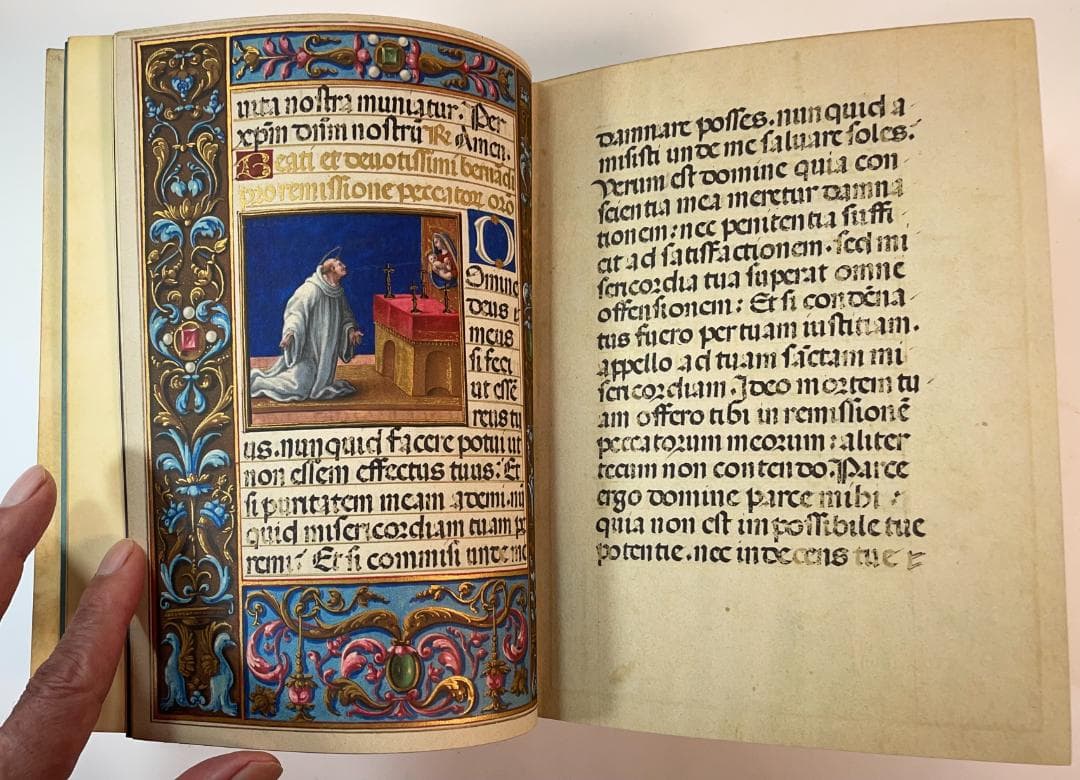 uita nostra muniatur: Per
xp̃m dñm nostrũ ℟ Amen.
Beati et deuotissimi bernadi
pro remissione peccatoꝝ oro
O
Omine
deus
meus
si feci
ut essẽ
reus tu
us. nunquid facere potui ut
non essem effectus tuus: Et
si puritatem meam ademi. nũ
quid misericordiam tuam pe
remi: Et si commisi unde me
damnare posses. nunquid a
misisti unde me saluare soles.
Verum est domine quia con
scientia mea meretur damna
tionem: nec penitentia suffi
cit ad satisfactionem. sed mi
sericordia tua superat omne
offensionem: Et si condẽna
tus fuero per tuam iustitiam.
appello ad tuam sãctam mi
sericordiam. Ideo mortem tu
am offero tibi in remissionẽ
peccatorum meorum: aliter
tecum non contendo. Parce
ergo domine parce mihi:
quia non est impossibile tue
potentie. nec indecens tue